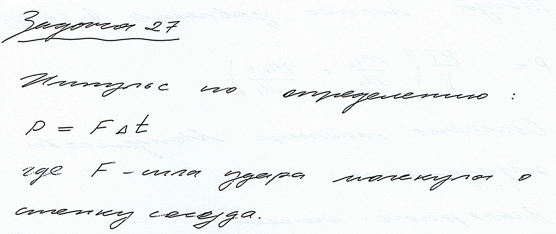 Задача 27
Импульс по определению :
p = F Δ t
где F - сила удара молекулы о
стенку сосуда.